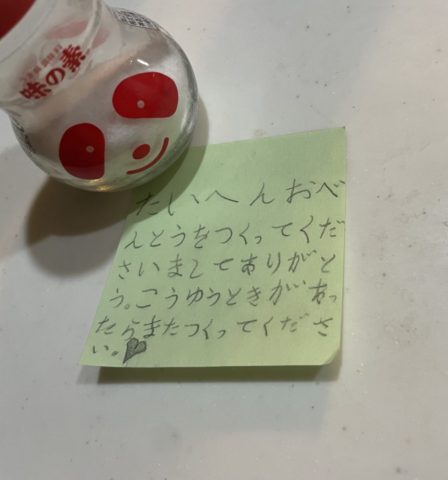 味の素
たいへんおべ
んとうをつくってくだ
さいましてありがと
う。こうゆうときがあっ
たらまたつくってくださ
い。